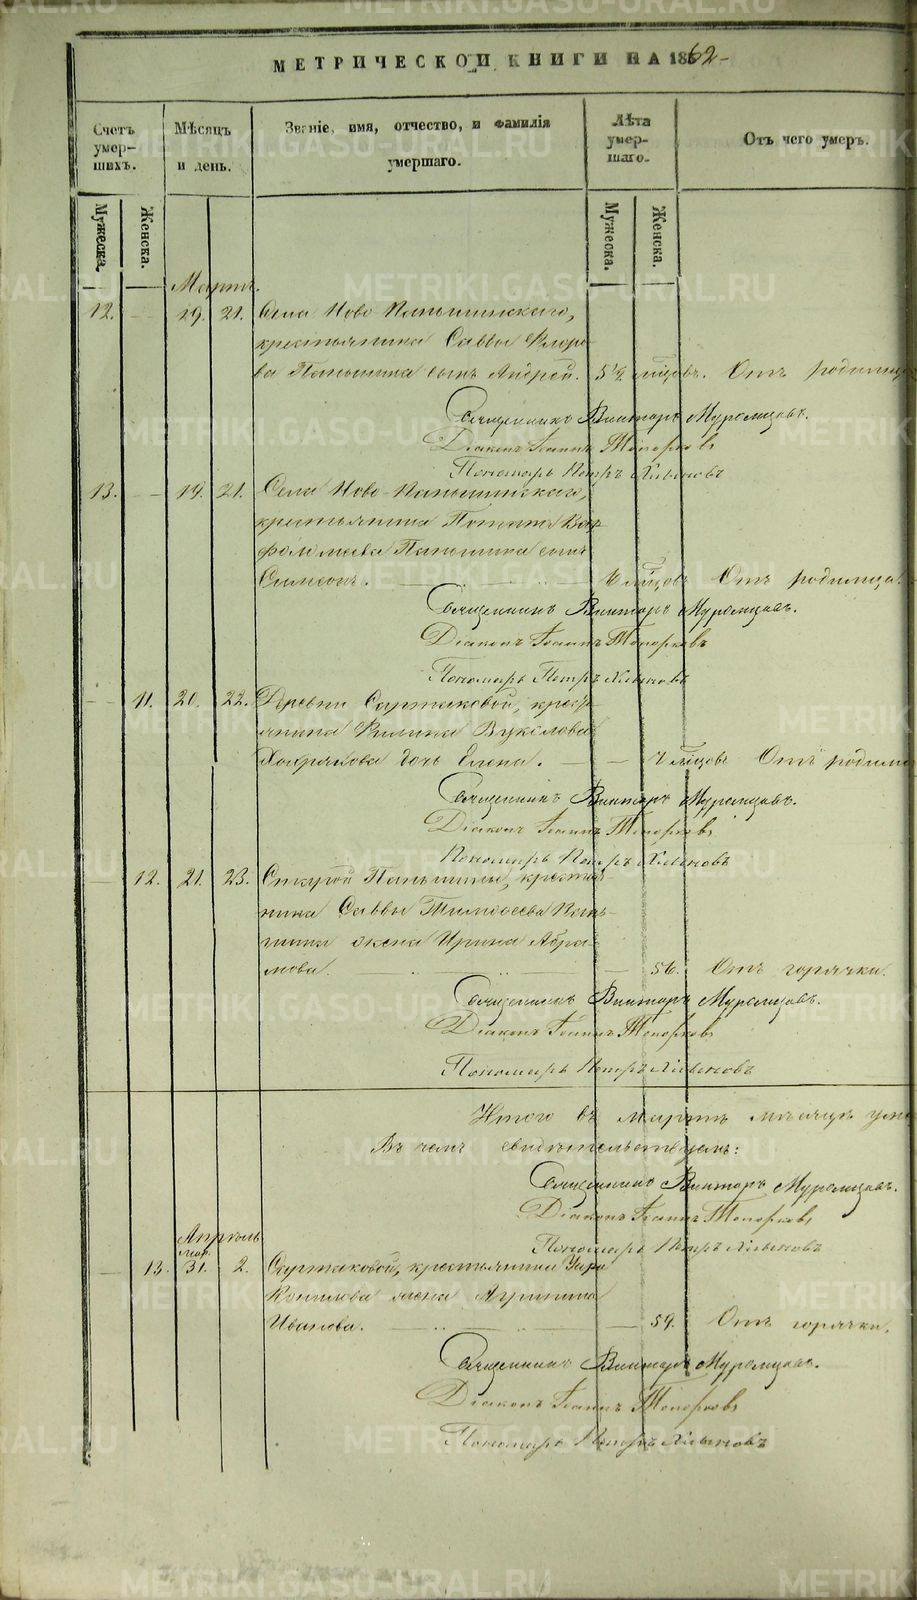 МЕТРИЧЕСКОЙ КНИГИ НА 1862
Счетъ умер-шихъ.
Мѣсяцъ и день.
Званіе, имя, отчество, и фамилія умершаго.
Лѣта умер-шаго.
Отъ чего умеръ.
Мужеска. Женска.
Мужеска. Женска.
Мартъ.
12. 19. 21. Села Ново Паньшинскаго,
крестьянина Саввы Флоро-
ва Паньшина сынъ Андрей. мѣсцовъ. Отъ родимца
Священникъ Викторъ Муромцовъ.
Діаконъ Іоаннъ Топорковъ
Пономарь Петръ Хлыновъ
13. 19. 21. Села Ново-Паньшинскаго,
крестьянина Вар-
фоломеева Паньшина сынъ
Симеонъ. 6 мѣсцовъ Отъ родимца.
Священникъ Викторъ Муромцовъ.
Діаконъ Іоаннъ Топорковъ
Пономарь Петръ Хлыновъ
11. 20. 22. Деревни Сартаковой, кресть-
янина Филипа Вуколова
Хаврякова дочь Елена. мѣсцовъ Отъ родимца
Священникъ Викторъ Муромцовъ.
Діаконъ Іоаннъ Топорковъ
Пономарь Петръ Хлыновъ
12. 21. 23. Старой Паньшины, крестья-
нина Саввы Тимофеева Пань-
шина жена Ирина Абра-
мова. 56. Отъ горячки.
Священникъ Викторъ Муромцовъ.
Діаконъ Іоаннъ Топорковъ
Пономарь Петръ Хлыновъ
Итого въ мартѣ мѣсяцѣ
Въ чемъ свидѣтельствуемъ:
Священникъ Викторъ Муромцовъ.
Діаконъ Іоаннъ Топорковъ
Пономарь Петръ Хлыновъ
Апрѣль
мар.
13. 31. 2. Сартаковой, крестьянина
жена Агрипина
Иванова. 59. Отъ горячки.
Священникъ Викторъ Муромцовъ.
Діаконъ Іоаннъ Топорковъ
Пономарь Петръ Хлыновъ
METRIKI.GASO-URAL.RU